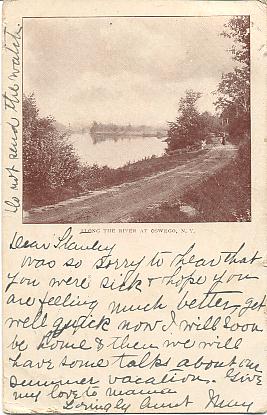 Do not send the watch.
ALONG THE RIVER AT OSWEGO, N. Y.
Dear Stanley
Was so sorry to hear that
you were sick & hope you
are feeling much better, get
well quick now I will soon
be home & then we will
have some talks about our
summer vacation. Give
my love to mama
Lovingly Aunt